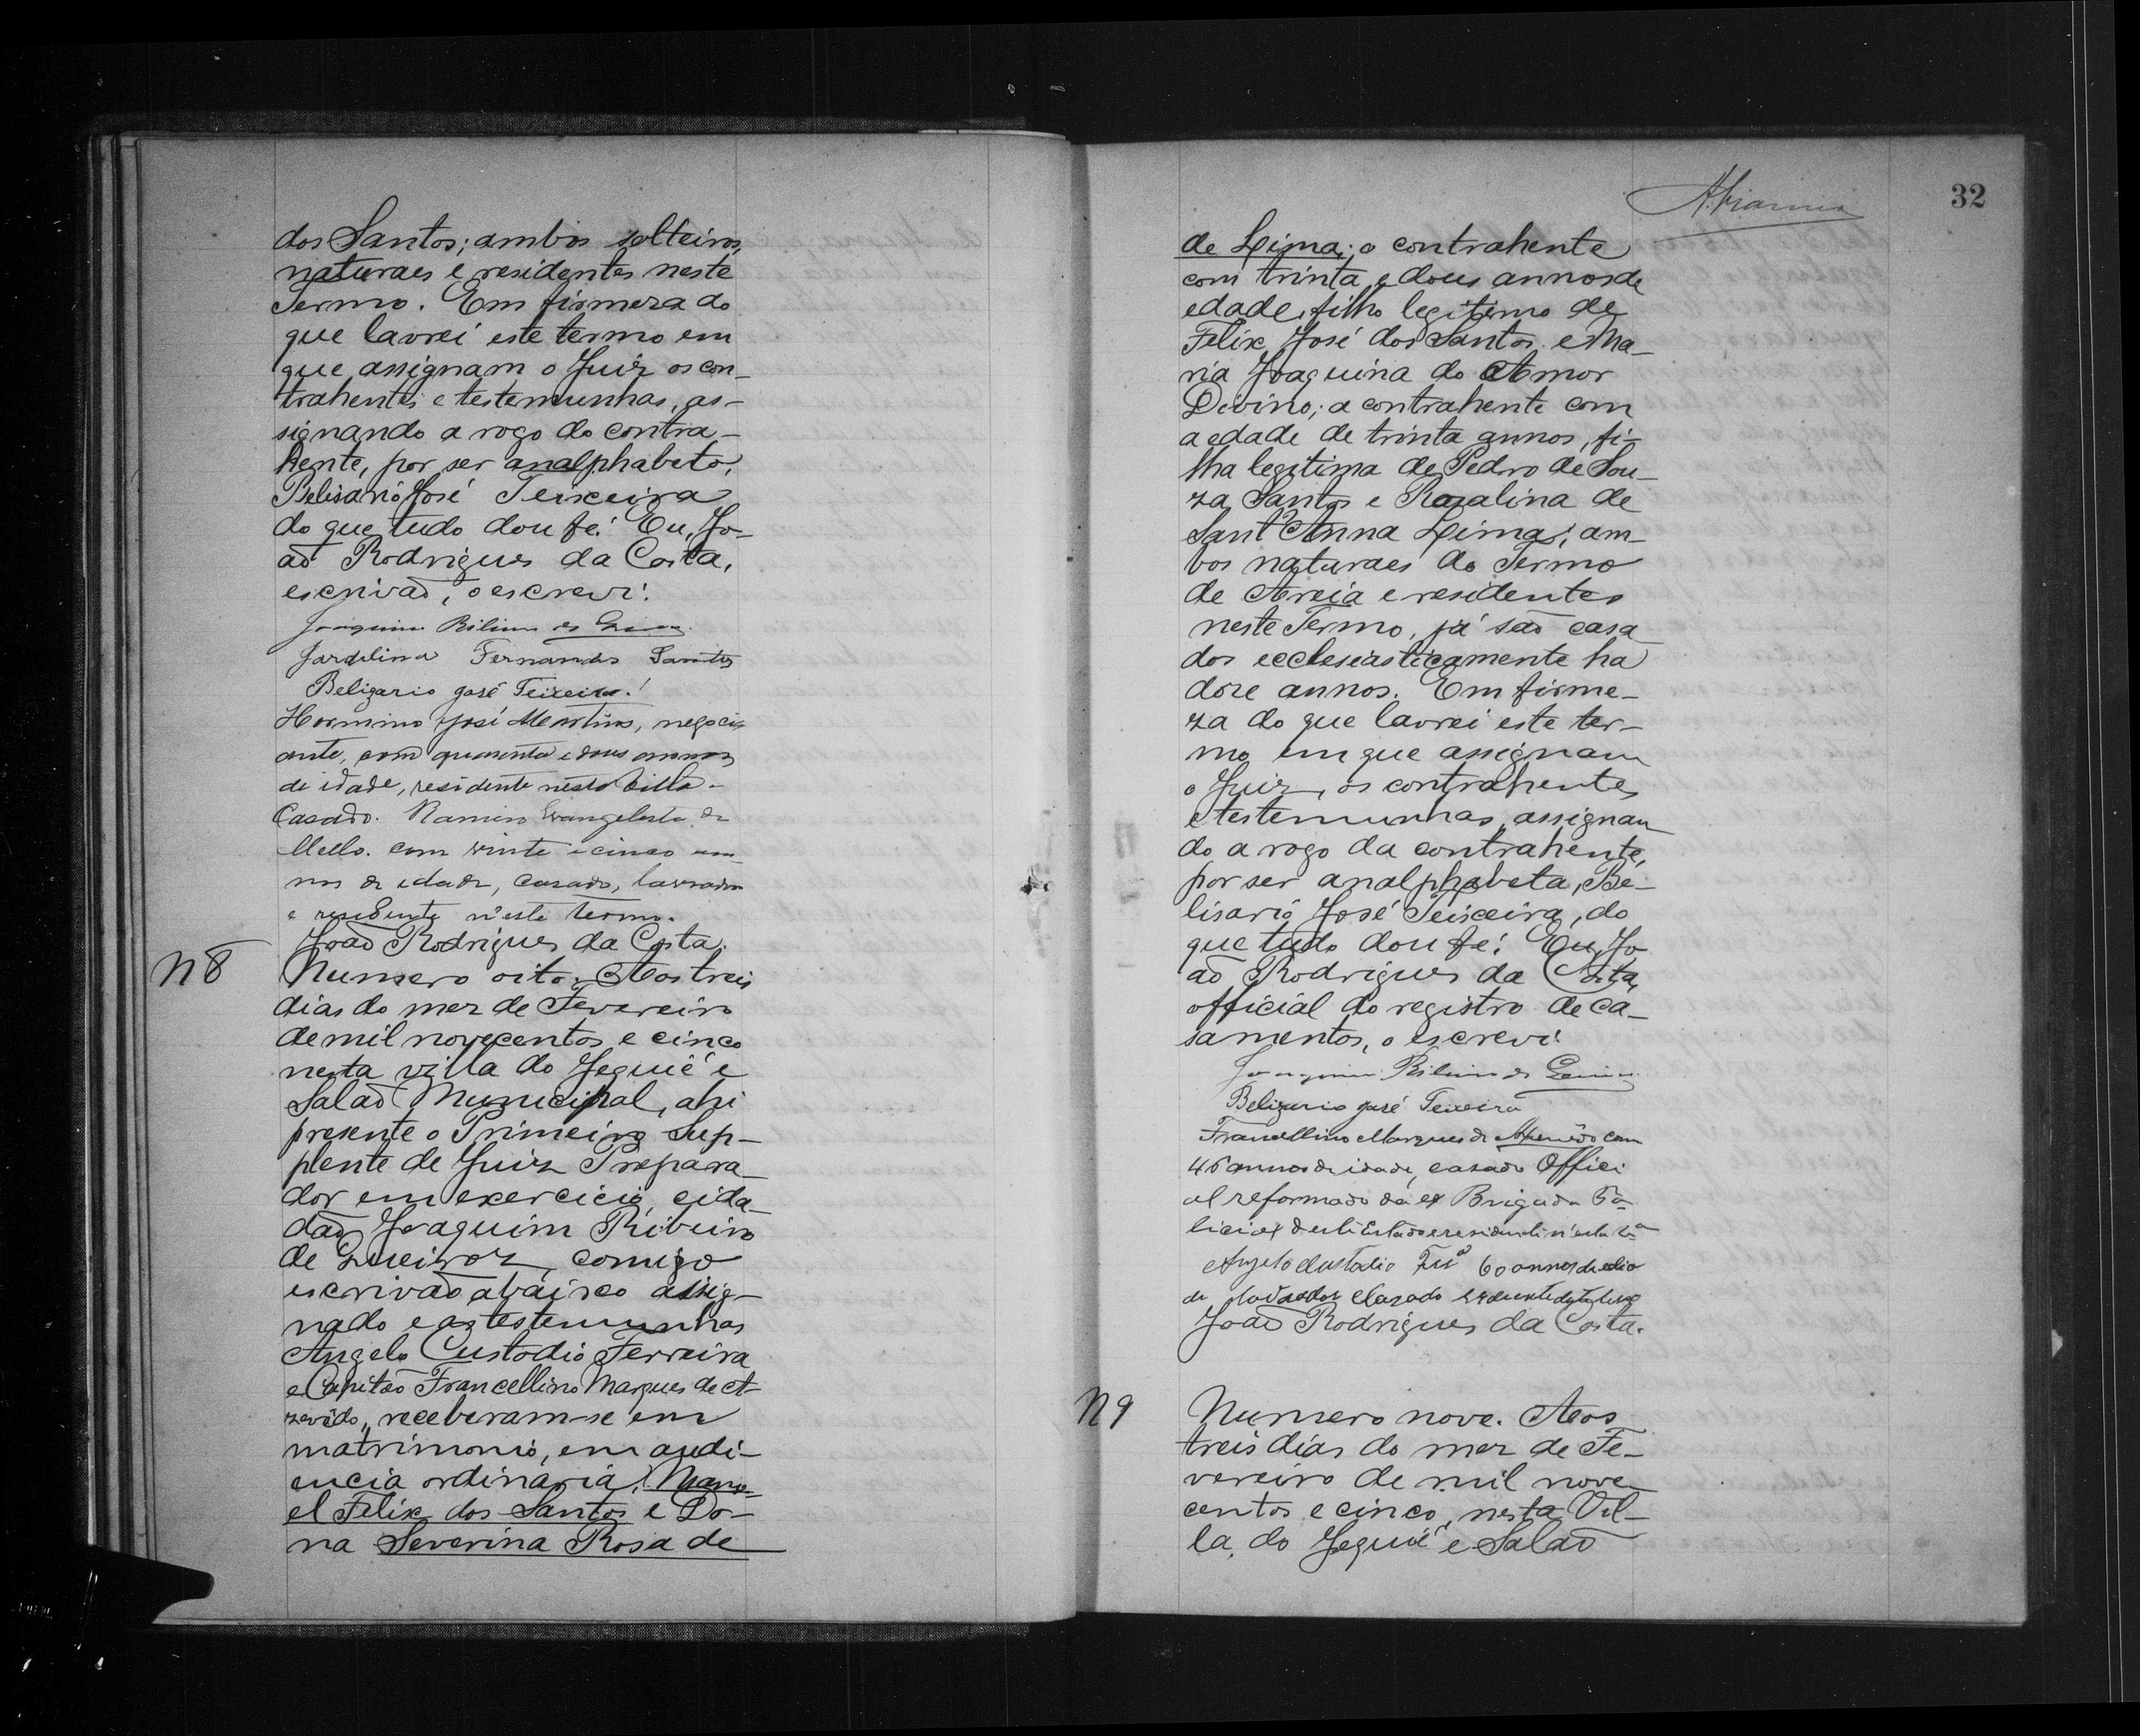 dos Santos; ambos solteiros,
naturaes e residentes neste
Termo. Em firmeza do
que lavrei este termo em
que assignam o Juiz os con-
trahentes e testemunhas, as-
signando a rogo do contra-
hente, por ser analphabeto,
Belisario José Teixeira
do que tudo dou fé. Eu, Jo-
aõ Rodrigues da Costa,
escrivaõ, o escrevi.
Joaquim Ribeiro de
Jardelina Fernandes Santos
Belizario José Teixeira.
Hormino José Martins, negoci
ante, com quarenta e dous annos
de idade, residente nesta Villa.
Casado. Ramiro Evangelista de
Mello. com vinte e cinco an-
nos de edade, casado, lavrador
e residente n'este termo.
Joaõ Rodrigues da Costa.
N 8
Numero oito. Aos treis
dias do mez de Fevereiro
de mil novecentos e cinco
nesta villa do Jequié e
Salaõ Municipal, ahi
presente o Primeiro Sup-
plente de Juiz Prepara-
dor em exercicio, cida-
daõ Joaquim Ribeiro
de Queiroz, comigo
escrivaõ abaixo assig-
nado e as testemunhas
Angelo Custodio Ferreira
e Capitaõ Francellino Marques de A-
zevêdo, receberam-se em
matrimonio, em audi-
encia ordinaria, Mano-
el Felix dos Santos e Do-
na Severina Rosa de
32
de Lima; o contrahente
com trinta e dous annos de
edade, filho legitimo de
Felix José dos Santos e Ma-
ria Joaquina do Amor
Divino; a contrahente com
a edade de trinta annos, fi-
lha legitima de Pedro de Sou-
za Santos e Rozalina de
Sant'Anna Lima; am-
bos naturaes do Termo
de Areia e residentes
neste Termo, já saõ casa
dos ecclesiasticamente ha
doze annos. Em firme-
za do que lavrei este ter-
mo em que assignam
o Juiz, os contrahentes
e testemunhas, assignan
do a rogo da contrahente,
por ser analphabeta, Be-
lisario José Teixeira, do
que tudo dou fé. Eu, Jo
aõ Rodrigues da Costa,
official do registro de ca-
samentos, o escrevi.
Joaquim Ribeiro de
Belizario José Teixeira
Francellino Marques de Azevêdo com
46 annos de idade, casado Offici
al reformado da ex Brigada Po
licial deste Estado e residente n'esta
Angelo Custodio 60 annos de eda
de Lavrador Casado
Joaõ Rodrigues da Costa.
N 9
Numero nove. Aos
treis dias do mez de Fe-
vereiro de mil nove-
centos e cinco, nesta Vil-
la do Jequié e Salaõ